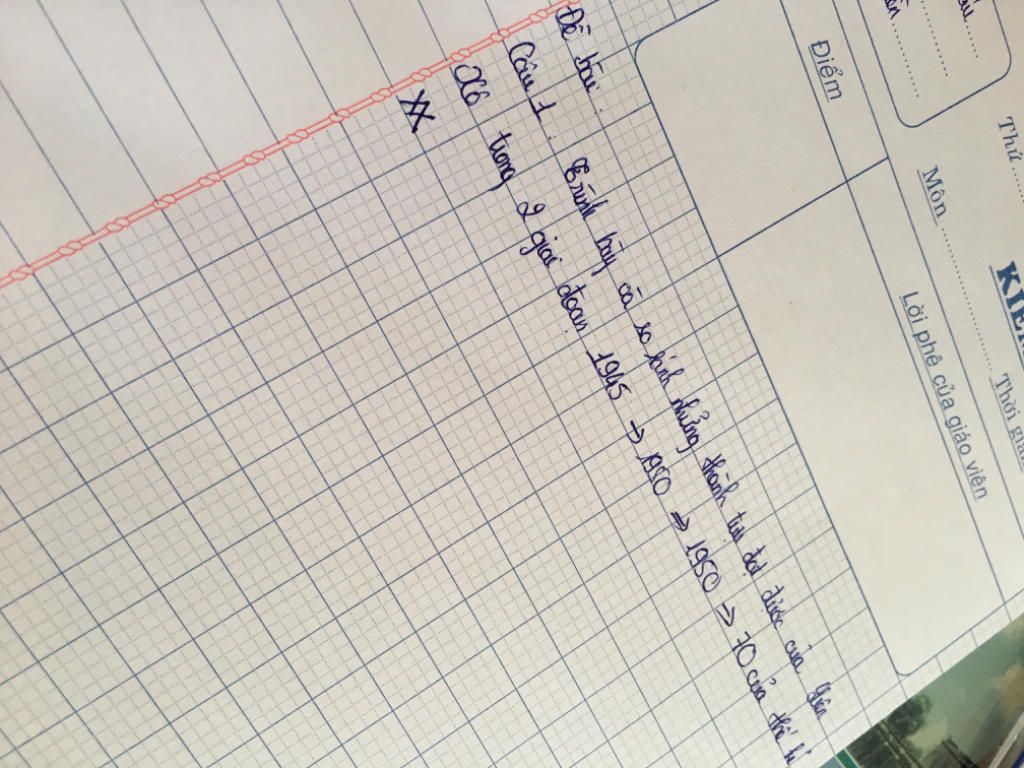 ên ..........
KIỂM
Thứ ........
Môn .................... Thời gian
Điểm
Lời phê của giáo viên
Đề bài:
Câu 1: Trình bày và so sánh những thành tựu đạt được của Liên
Xô trong 2 giai đoạn 1945 → 1950 → 1950 → 70 của thế kỉ
XX